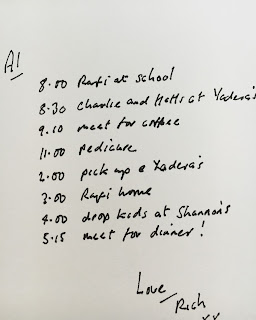 A1
8.00 Rafi at school
8.30 Charlie and Hatts at Yadera's
9.10 meet for coffee
11.00 pedicure
2.00 pick up @ Yadera's
3.00 Rafi home
4.00 drop kids at Shannon's
5.15 meet for dinner!
Love
Rich
xx